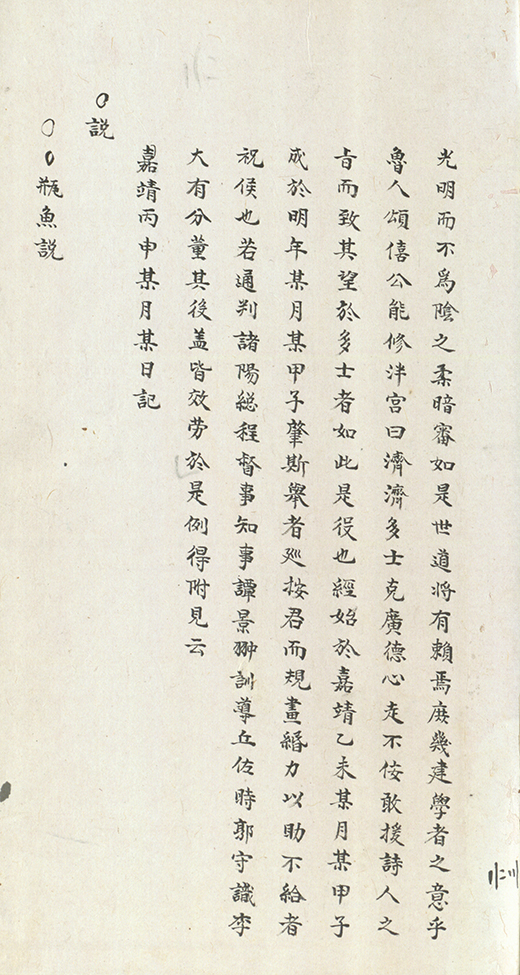 光明而不爲陰之柔暗審如是世道將有賴焉庻幾建學者之意乎
魯人頌僖公能修泮宮曰濟濟多士克廣德心走不佞敢援詩人之
㫖而致其望於多士者如此是役也經始於嘉靖乙未某月某甲子
成於明年某月某甲子肇斯舉者廵按君而規畫緡力以助不給者
祝侯也若通判諸陽總程督事知事譚景翀訓導丘佐時郭守識李
大有分董其後盖皆效劳於是例得附見云
嘉靖丙申某月某日記
〇說
〇〇瓶魚說